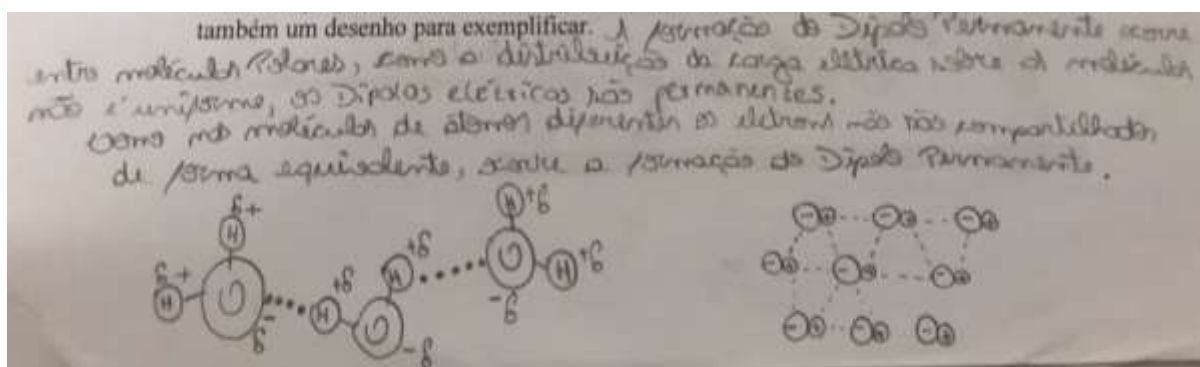 também um desenho para exemplificar. A formação do Dipolo Permanente ocorre
entre moléculas Polares, como a distribuição da carga elétrica sobre as moléculas
não é uniforme, os Dipolos elétricos são permanentes.
Como nas moléculas de átomos diferentes os elétrons não são compartilhados
de forma equivalente, ocorre a formação do Dipolo Permanente.
δ+ H δ+ H O δ-
δ+ H δ+ H O δ-
H δ+ O H δ+ δ-
⊖⊕ ⊖⊕ ⊖⊕
⊖⊕ ⊖⊕ ⊖⊕
⊖⊕ ⊖⊕ ⊖⊕